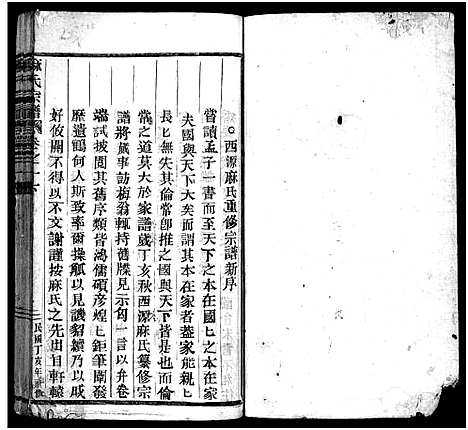 ○西源麻氏重修宗譜新序
嘗讀孟子一書而至天下之本在國匕之本在家
夫國與天下大矣而謂其本在家者蓋家能親匕
長匕無失其倫常卽推之國與天下皆是也而倫
常之道莫大於家譜歲丁亥秋西源麻氏纂修宗
譜將蕆事訪梅翁輒持舊牒見示匃一言以弁卷
端試披閱其舊序類皆鴻儒碩彥煌匕鉅筆闡發
歷遺鶴何人斯敢率爾操觚以見譏貂續乃以戚
好攸關不得以不文謝謹按麻氏之先出自軒轅
麻氏宗譜 卷之一
民國丁亥年